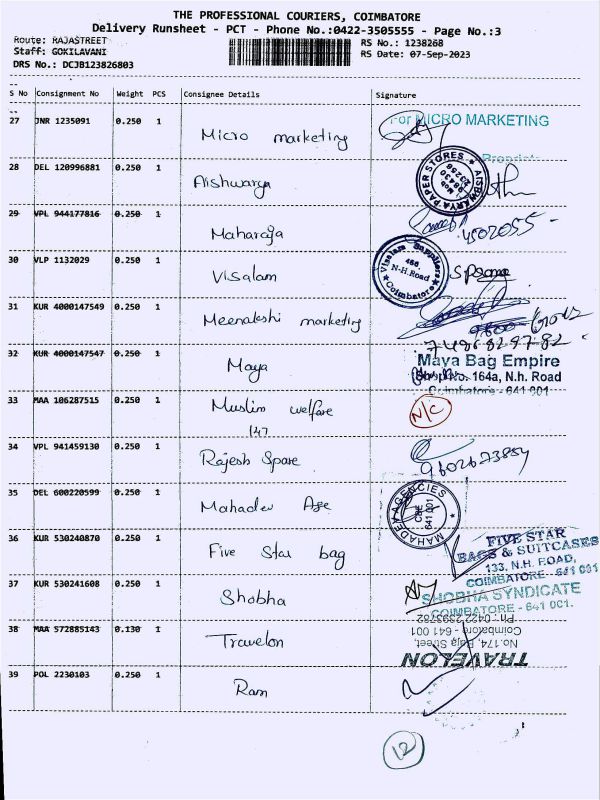 THE PROFESSIONAL COURIERS, COIMBATORE
Delivery Runsheet - PCT - Phone No.:0422-3505555 - Page No.:3
Route: RAJASTREET RS No.: 1238268
Staff: GOKILAVANI RS Date: 07-Sep-2023
DRS No.: DCJB123826803
S No Consignment No Weight PCS Consignee Details Signature
27 JNR 1235091 0.250 1 Micro marketing For MICRO MARKETING
28 DEL 120996881 0.250 1 Aishwarya AISHWARYA PAPER STORES
29 VPL 944177816 0.250 1 Maharaja
30 VLP 1132029 0.250 1 Visalam Visalam Suppliers 486 N-H.Road Coimbatore
31 KUR 4000147549 0.250 1 Meenakshi marketing
7486829782
32 KUR 4000147547 0.250 1 Maya Maya Bag Empire
164a, N.h. Road
Coimbatore - 641 001
33 MAA 106287515 0.250 1 Muslim welfare N/C
147
34 VPL 941459130 0.250 1 Rajesh Spare
35 DEL 600220599 0.250 1 Mahadev Age MAHADEV AGENCIES CBE 641 001
36 KUR 530240870 0.250 1 Five Star bag FIVE STAR
BAGS & SUITCASES
133, N.H. ROAD,
COIMBATORE - 641 001
37 KUR 530241608 0.250 1 Shobha SHOBHA SYNDICATE
COIMBATORE - 641 001.
38 MAA 572885143 0.130 1 Travelon TRAVELON
No.174, Raja Street,
Coimbatore - 641 001
Ph : 0422 2393782
39 POL 2230103 0.250 1 Ram
12